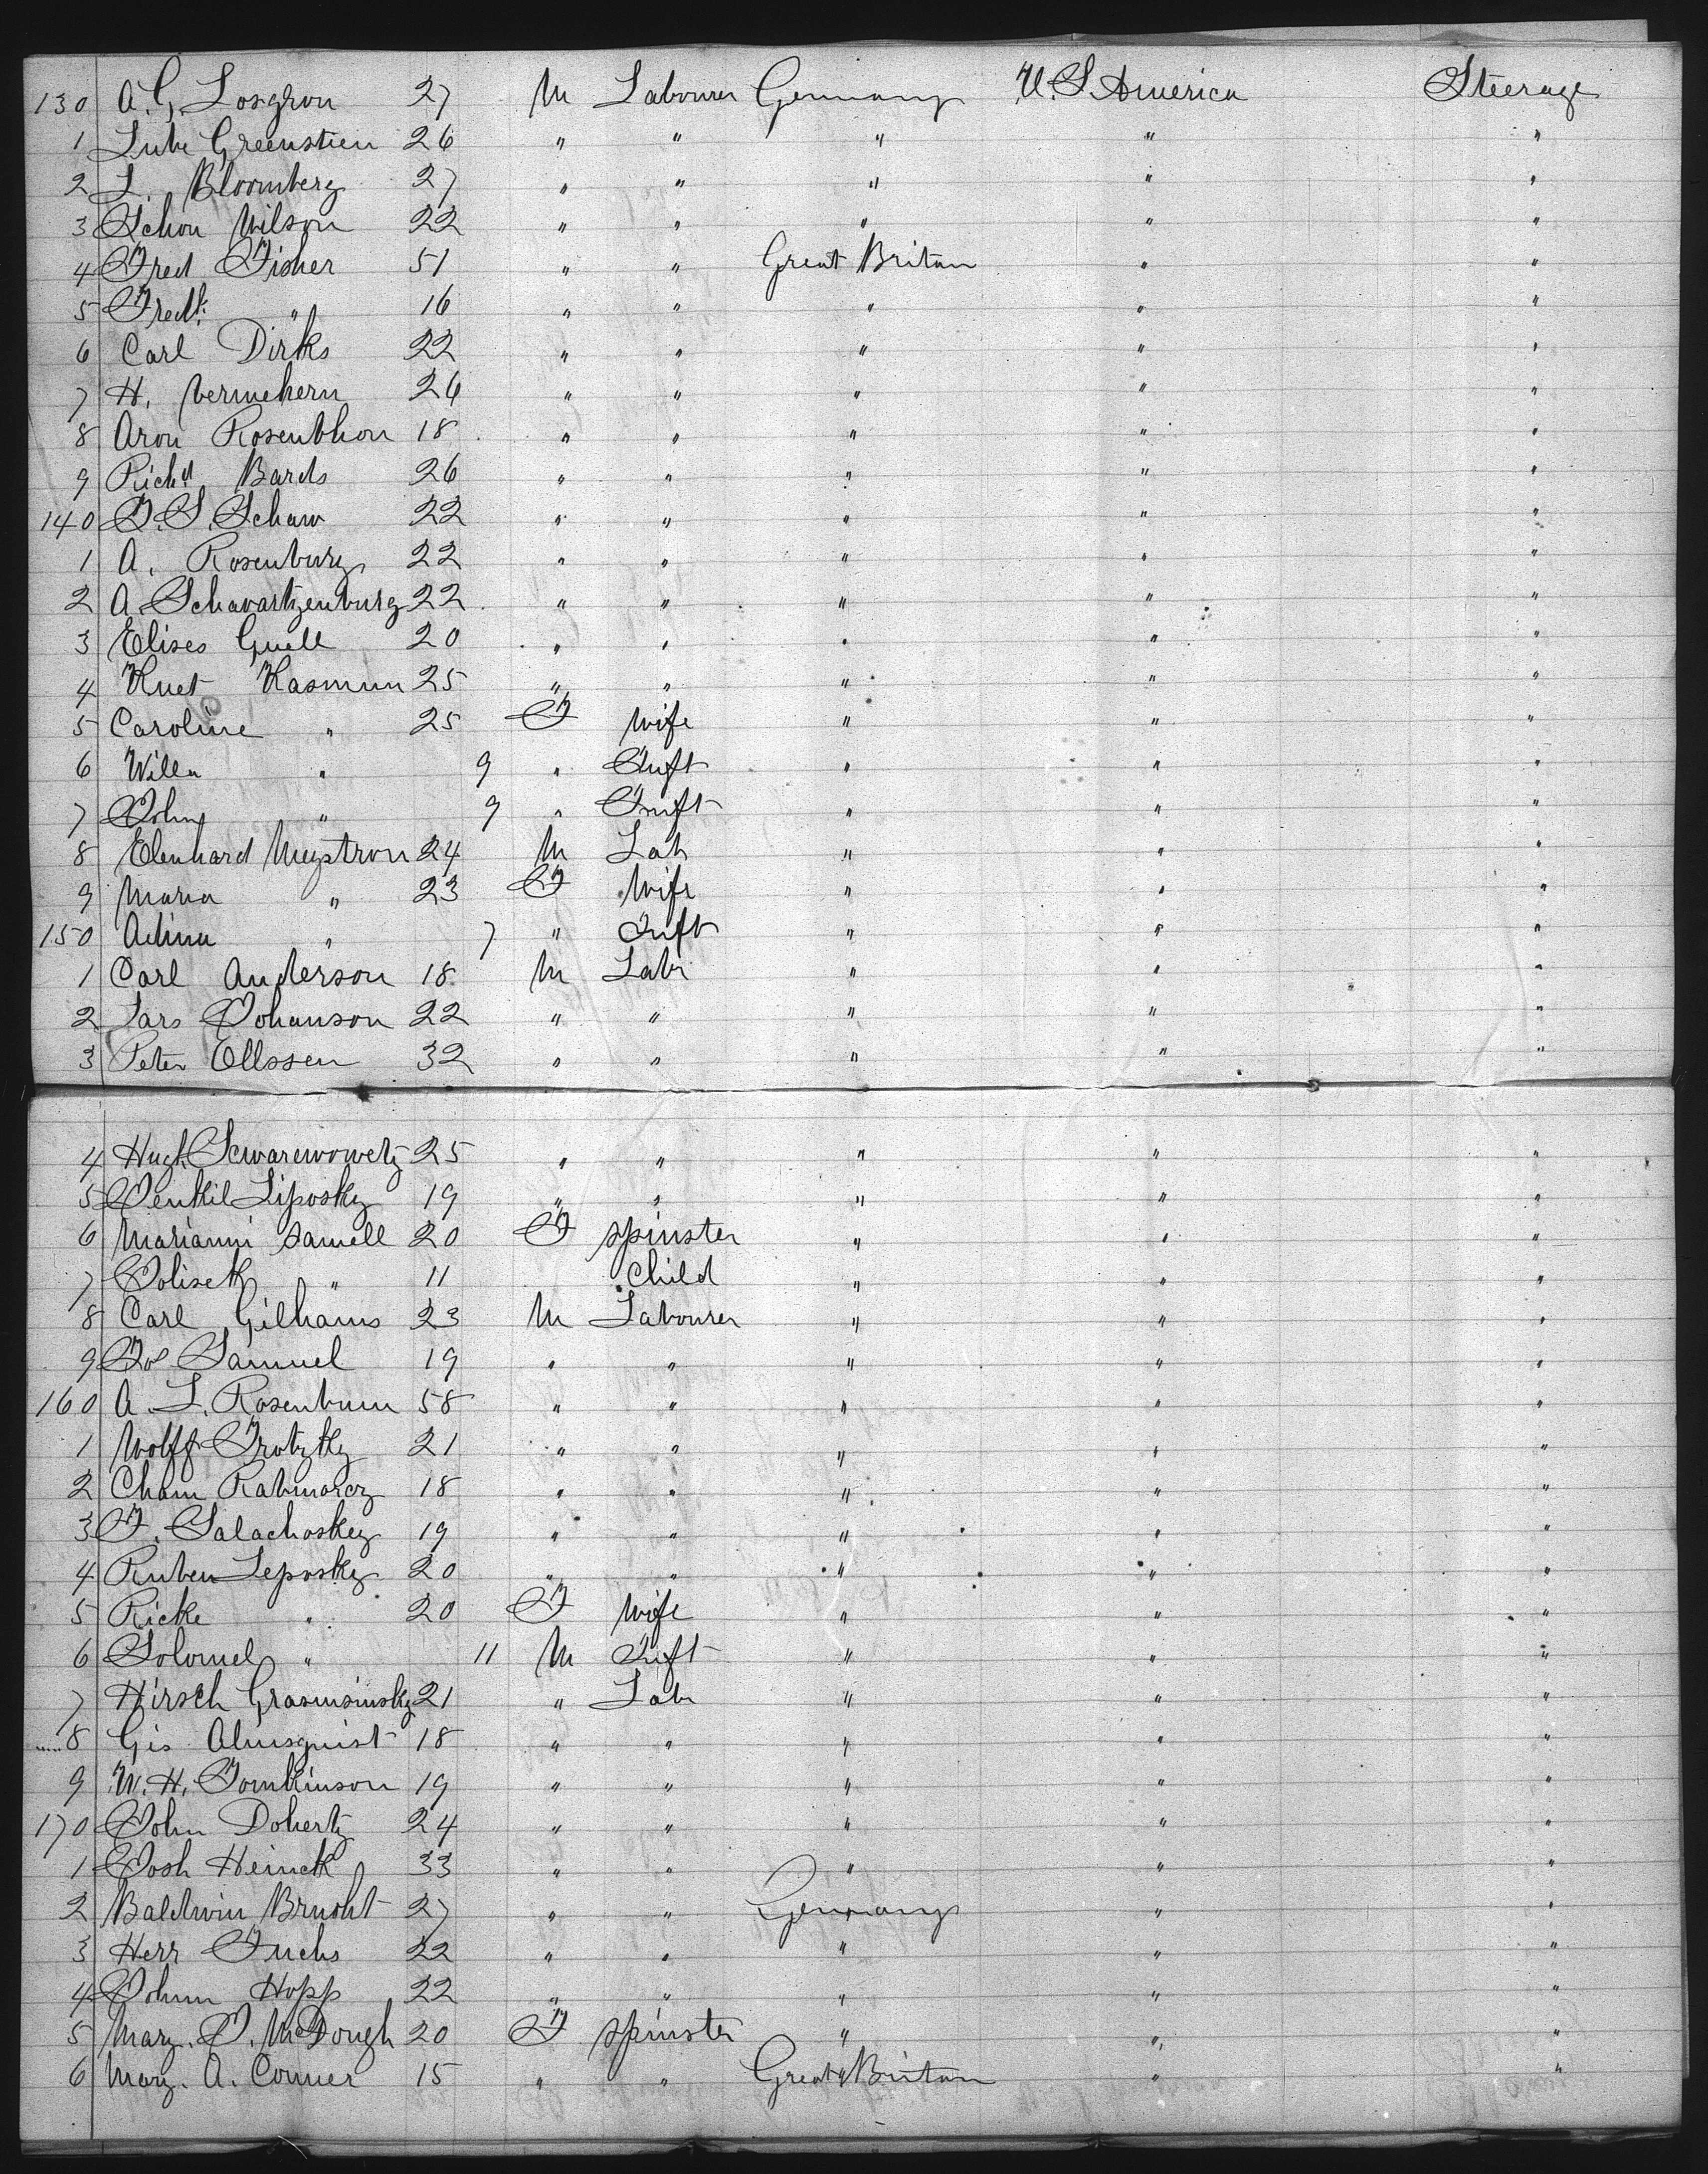 130 A. G. Losgron 27 M Labourer Germany U. S. America Steerage
1 Lube Greenstien 26 " " " " "
2 L. Bloomberg 27 " " " " "
3 Schon Wilson 22 " " " " "
4 Fred Fisher 51 " " Great Britan " "
5 Fredk " 16 " " " " "
6 Carl Dirks 22 " " " " "
7 H. Vermehern 26 " " " " "
8 Aron Rosenthon 18 " " " " "
9 Richd Bards 26 " " " " "
140 J. S. Schaw 22 " " " " "
1 A. Rosenburg 22 " " " " "
2 A. Schwartzenburg 22 " " " " "
3 Elises Guell 20 " " " " "
4 Knet Kasmun 25 " " " " "
5 Caroline " 25 F Wife " " "
6 Willa " 9 " Inft " " "
7 John " 9 " Inft " " "
8 24 M Lab " " "
9 Maria " 23 F Wife " " "
150 " 7 " Inft " " "
1 Carl Anderson 18 M Labr " " "
2 Lars Johanson 22 " " " " "
3 Peter Ollssen 32 " " " " "
4 Hugh 25 " " " " "
5 Jenkil Liposky 19 " " " " "
6 Marianni Samell 20 F Spinster " " "
7 " 11 Child " " "
8 Carl Gilhams 23 M Labourer " " "
9 Jos Samuel 19 " " " " "
160 A. L. Rosenbum 58 " " " " "
1 Wolff Trotzky 21 " " " " "
2 Cham Rabinorcz 18 " " " " "
3 F. Salachoskey 19 " " " " "
4 Ruben Leposky 20 " " " " "
5 Ricke " 20 F Wife " " "
6 Solomel " 11 M Inft " " "
7 Hirsch Grasmsinsky 21 " Labr " " "
8 Gis Almsquist 18 " " " " "
9 W. H. Tomkinson 19 " " " " "
170 John Doherty 24 " " " " "
1 Josh Heinick 33 " " " " "
2 Baldwin Brusht 27 " " Germany " "
3 Herr Fuchs 22 " " " " "
4 Johnn Hopp 22 " " " " "
5 Mary. J. McDough 20 F Spinster " " "
6 Mary. A. Conner 15 " " Great Britan " "